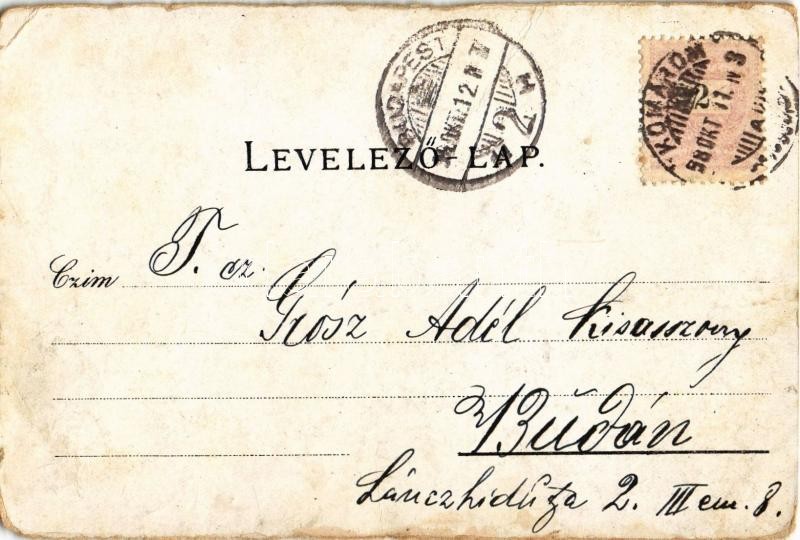 BUDAPEST
OKT. 12
KOMÁROM
98 OKT 11
2
LEVELEZŐ-LAP.
Czim T. cz.
Grósz Adél kisasszony
Budán
Lánczhid utza 2. III em. 8.